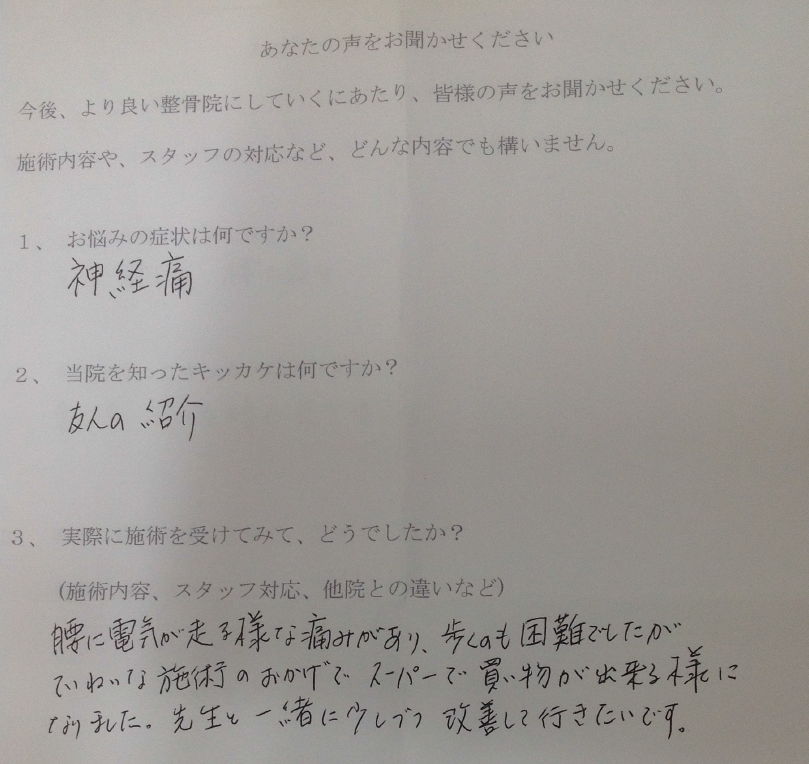 あなたの声をお聞かせください
今後、より良い整骨院にしていくにあたり、皆様の声をお聞かせください。
施術内容や、スタッフの対応など、どんな内容でも構いません。
１、 お悩みの症状は何ですか？
神経痛
２、 当院を知ったキッカケは何ですか？
友人の紹介
３、 実際に施術を受けてみて、どうでしたか？
(施術内容、スタッフ対応、他院との違いなど)
腰に電気が走る様な痛みがあり、歩くのも困難でしたが
ていねいな施術のおかげでスーパーで買い物が出来る様に
なりました。先生と一緒に少しづつ改善して行きたいです。